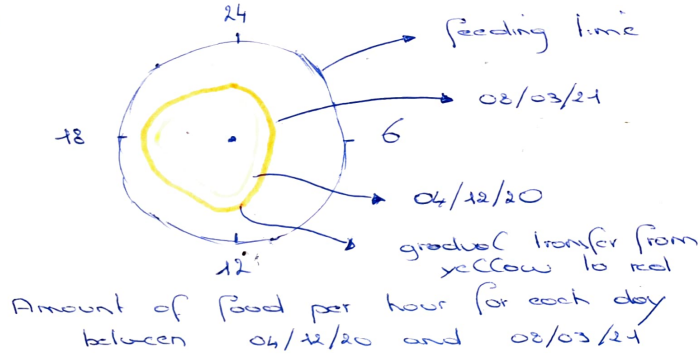 24
feeding time
08/03/21
18
6
04/12/20
gradual transfer from
yellow to red
12
Amount of food per hour for each day
between 04/12/20 and 08/03/21